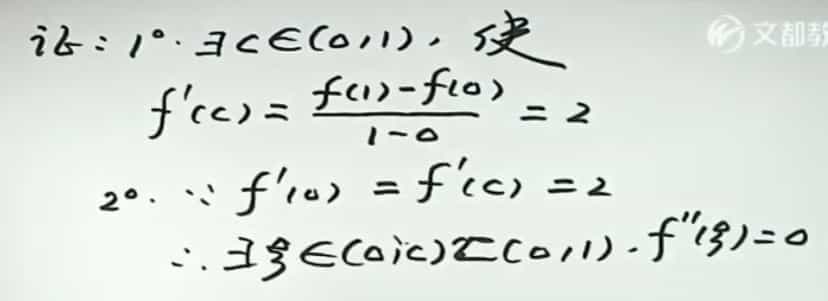 证：1°. ∃c∈(0,1)，使
f'(c) = \frac{f(1)-f(0)}{1-0} = 2
2°. ∵ f'(0) = f'(c) = 2
∴ ∃ξ∈(0,c)⊂(0,1). f''(ξ)=0
文都教